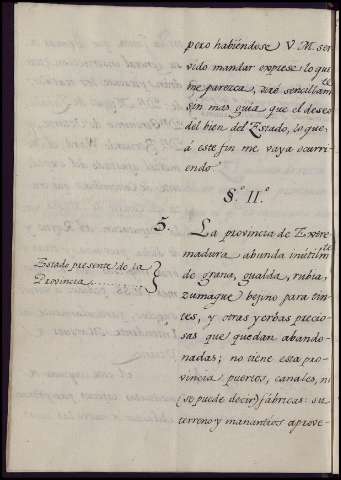 pero habiéndose V. M. ser
vido mandar exprese lo que
me parezca, daré sencillam.te
sin mas guia que el deseo
del bien del Estado, lo que
á este fin me vaya ocurri
endo.
§.º II.º
5.
La provincia de Extre
madura abunda inútilm.te
de grana, gualda, rubia,
zumaque, bejino para tin
tes, y otras yerbas precio
sas que quedan abando
nadas; no tiene esta pro
vincia puertos, canales, ni
(se puede decir) fábricas: su
terreno y manantíos aprove-
Estado presente de la
Provincia..........